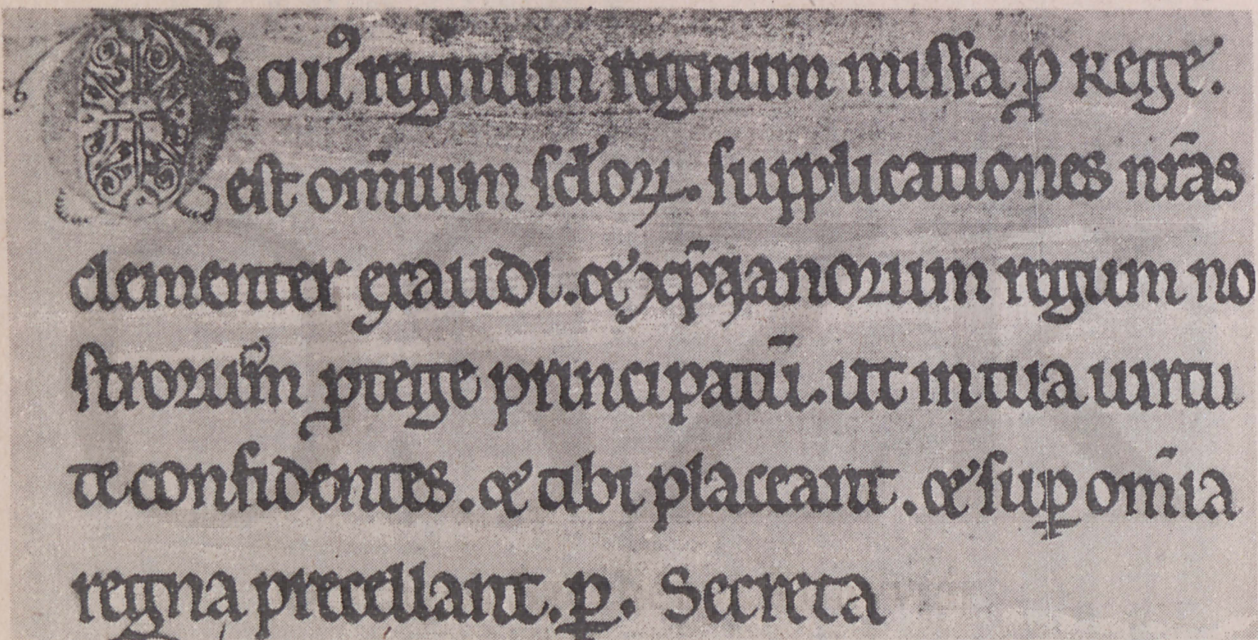 Ds cui' regnum regnum missa ꝑ Rege.
est om̄ium scl'oꝝ. supplicationes nr̄as
clementer exaudi. et xp̄ianorum regum no
strorum ꝓtege principatū. ut in tua uirtu
te confidentes. et tibi placeant. et suꝑ om̄ia
regna precellant. ꝑ. Secreta